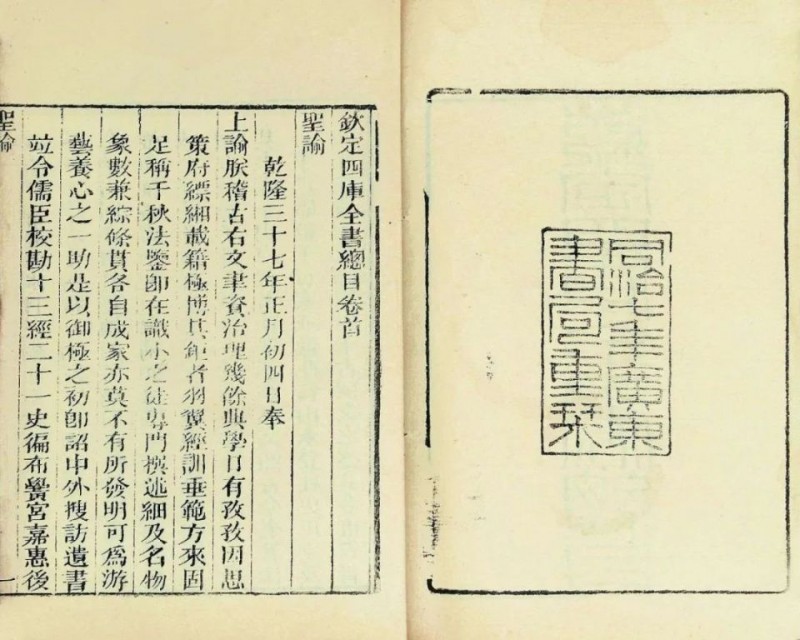 同治七年廣東
書局重栞
欽定四庫全書總目卷首
聖諭
乾隆三十七年正月初四日奉
上諭朕稽古右文聿資治理幾餘典學日有孜孜因思
策府縹緗載籍極博其鉅者羽翼經訓垂範方來固
足稱千秋法鑒卽在識小之徒專門撰述細及名物
象數兼綜條貫各自成家亦莫不有所發明可爲游
藝養心之一助是以御極之初卽詔中外搜訪遺書
竝令儒臣校勘十三經二十一史徧布黌宮嘉惠後
聖諭 一